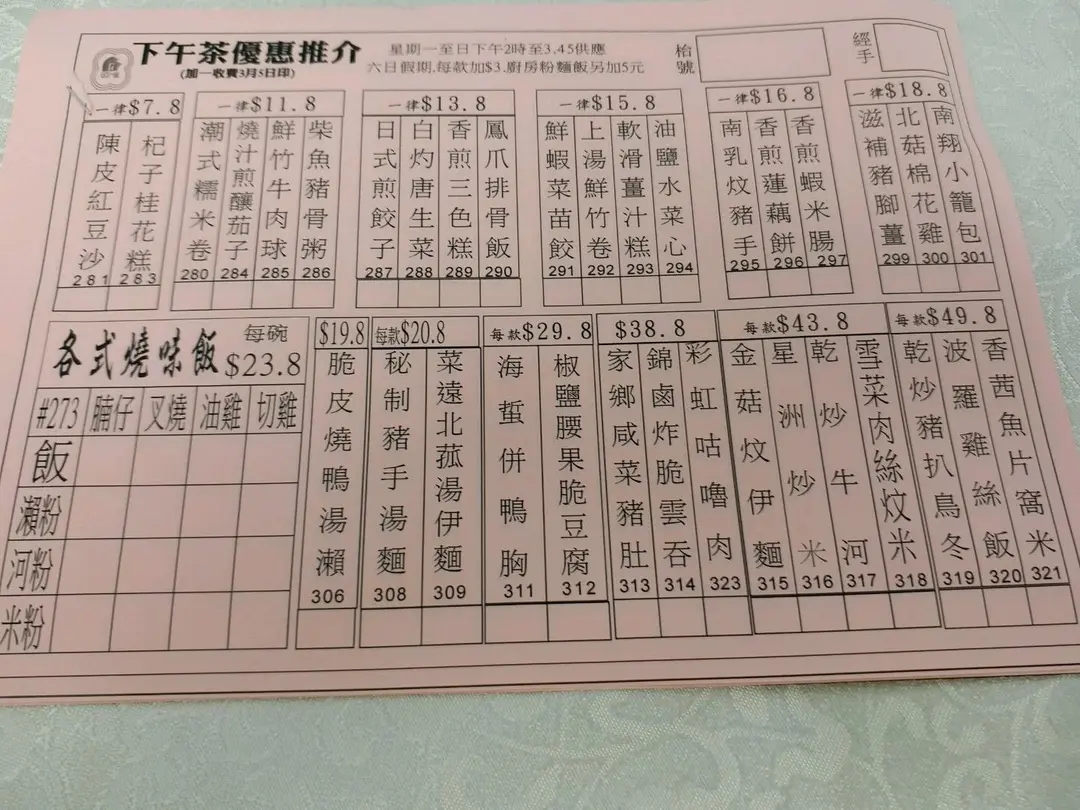 下午茶優惠推介
(加一收費3月5日印)
星期一至日下午2時至3.45供應
六日假期.每款加$3.廚房粉麵飯另加5元
枱號
經手
一律$7.8
陳皮紅豆沙 281
杞子桂花糕 283
一律$11.8
潮式糯米卷 280
燒汁煎釀茄子 284
鮮竹牛肉球 285
柴魚豬骨粥 286
一律$13.8
日式煎餃子 287
白灼唐生菜 288
香煎三色糕 289
鳳爪排骨飯 290
一律$15.8
鮮蝦菜苗餃 291
上湯鮮竹卷 292
軟滑薑汁糕 293
油鹽水菜心 294
一律$16.8
南乳炆豬手 295
香煎蓮藕餅 296
香煎蝦米腸 297
一律$18.8
滋補豬腳薑 299
北菇棉花雞 300
南翔小籠包 301
各式燒味飯 每碗$23.8
#273 腩仔 叉燒 油雞 切雞
飯
瀨粉
河粉
米粉
$19.8
脆皮燒鴨湯瀨 306
每款$20.8
秘制豬手湯麵 308
菜遠北菰湯伊麵 309
每款$29.8
海蜇併鴨胸 311
椒鹽腰果脆豆腐 312
$38.8
家鄉咸菜豬肚 313
錦鹵炸脆雲吞 314
彩虹咕嚕肉 323
每款$43.8
金菇炆伊麵 315
星洲炒米 316
乾炒牛河 317
雪菜肉絲炆米 318
每款$49.8
乾炒豬扒烏冬 319
波羅雞絲飯 320
香茜魚片窩米 321